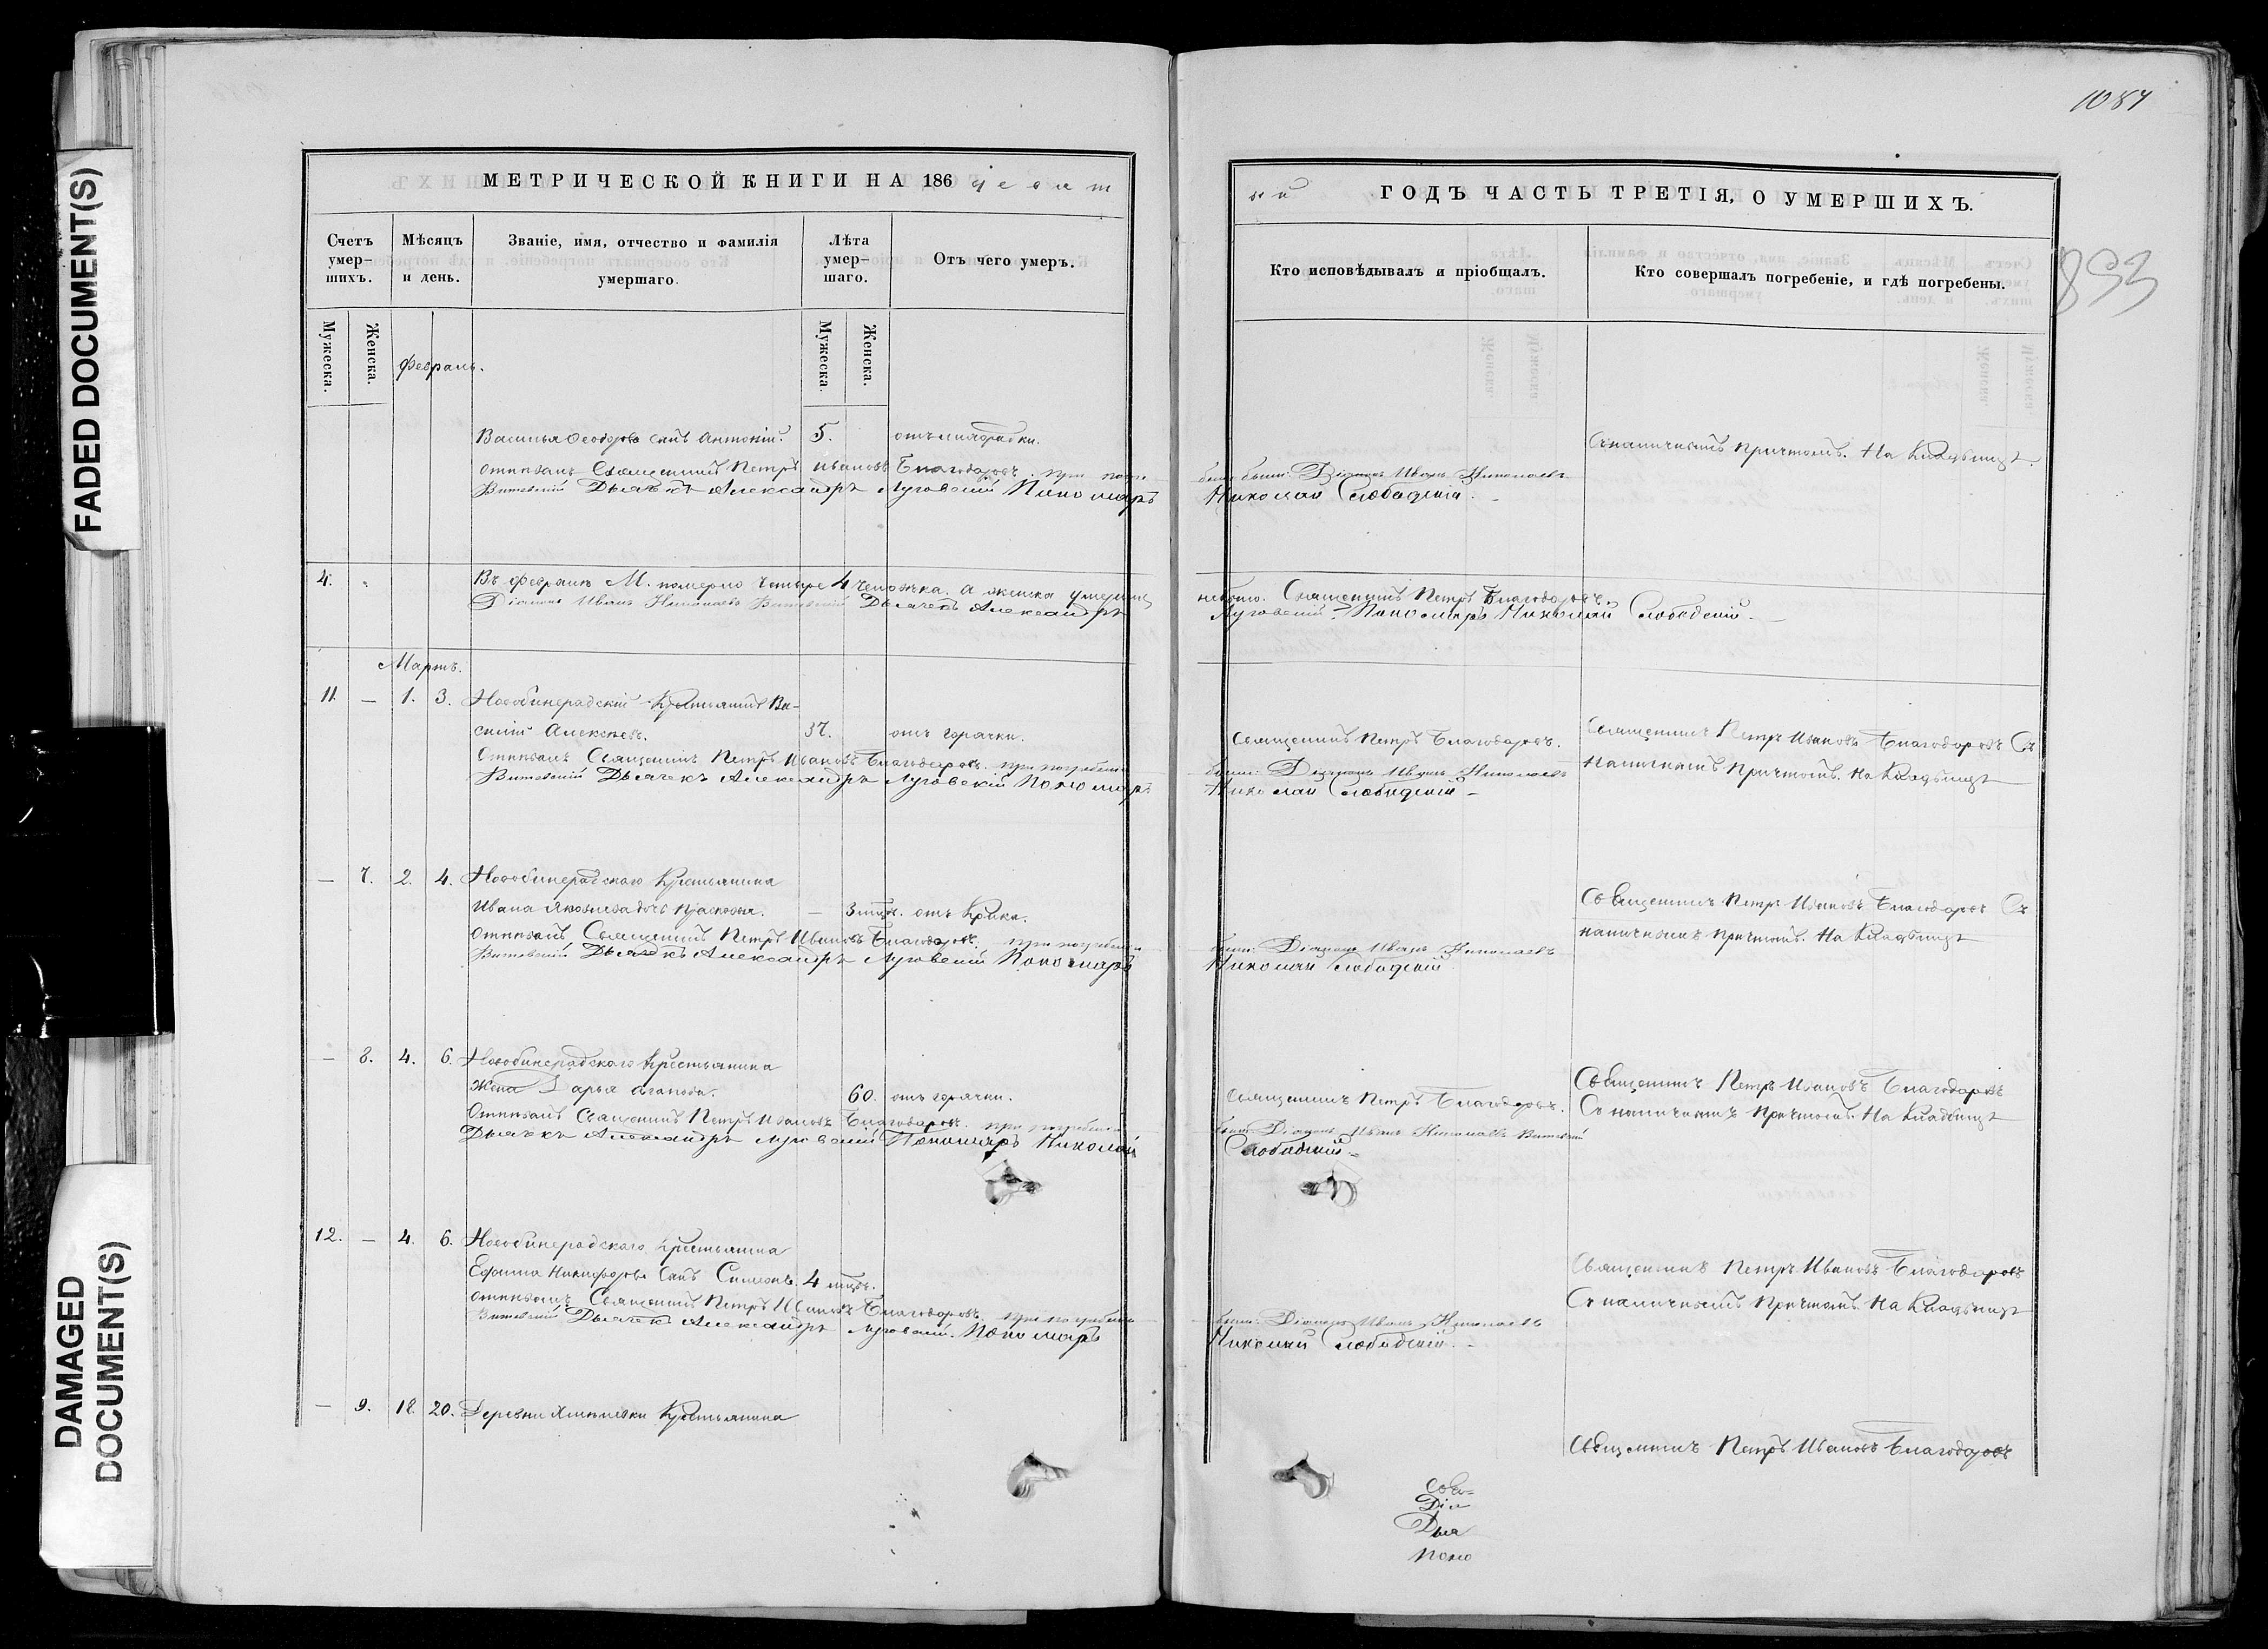 FADED DOCUMENT(S)
DAMAGED DOCUMENT(S)
МЕТРИЧЕСКОЙ КНИГИ НА 186 девят
Счетъ умер-шихъ.
Мѣсяцъ и день.
Званіе, имя, отчество и фамилія умершаго.
Лѣта умер-шаго.
Отъ чего умеръ.
Мужеска.
Женска.
Мужеска.
Женска.
Февраль.
Василья Ѳеодорова сынъ Антоній. 5. отъ лихорадки.
Священникъ Петръ Ивановъ Благодаровъ. при погре
Витевскій Дьячекъ Александръ Луговскій Пономарь
4. Въ Февралѣ М. померло четыре 4 человѣка. а женска умерших
Діаконъ Иванъ Николаевъ Витевскій Дьячекъ Александръ
Мартъ.
11. — 1. 3. Новобинерадскій Крестьянинъ Ва-
силій Алексѣевъ. 37. отъ горячки.
Священникъ Петръ Ивановъ Благодаровъ. при погребеніи
Витевскій Дьячекъ Александръ Луговскій Пономарь
— 7. 2. 4. Новобинерадскаго Крестьянина
Ивана Яковлева дочь Прасковья. — 3 отъ крику.
Священникъ Петръ Ивановъ Благодаровъ. при погребеніи
Витевскій Дьячекъ Александръ Луговскій Пономарь
— 8. 4. 6. Новобинерадскаго Крестьянина
жена Дарья Агапова. 60. отъ горячки.
Священникъ Петръ Ивановъ Благодаровъ. при погребеніи
Дьячекъ Александръ Луговскій Пономарь Николай
12. — 4. 6. Новобинерадскаго Крестьянина
Ефима Никифорова сынъ Симеонъ. 4
Священникъ Петръ Ивановъ Благодаровъ. при погребеніи
Витевскій Дьячекъ Александръ Луговскій Пономарь
— 9. 18. 20. Деревни Крестьянина
1087
893
ый ГОДЪ ЧАСТЬ ТРЕТІЯ, О УМЕРШИХЪ.
Кто исповѣдывалъ и пріобщалъ.
Кто совершалъ погребеніе, и гдѣ погребены.
Съ наличнымъ причтомъ. На Кладбищѣ.
были: Діаконъ Иванъ Николаевъ
Николай Слободскій.
Священникъ Петръ Благодаровъ.
Луговскій. Пономарь Николай Слободскій.
Священникъ Петръ Благодаровъ.
Священникъ Петръ Ивановъ Благодаровъ Съ
наличнымъ причтомъ. На Кладбищѣ
были: Діаконъ Иванъ Николаевъ
Николай Слободскій
Священникъ Петръ Ивановъ Благодаровъ Съ
наличнымъ причтомъ. На Кладбищѣ
были: Діаконъ Иванъ Николаевъ
Николай Слободскій
Священникъ Петръ Благодаровъ.
Священникъ Петръ Ивановъ Благодаровъ
Съ наличнымъ причтомъ. На Кладбищѣ
были: Діаконъ Иванъ Николаевъ Витевскій
Слободскій
Священникъ Петръ Ивановъ Благодаровъ
Съ наличнымъ причтомъ. На Кладбищѣ
были: Діаконъ Иванъ Николаевъ
Николай Слободскій.
Священникъ Петръ Ивановъ Благодаровъ
Свя-
Діа
Дья
Поно